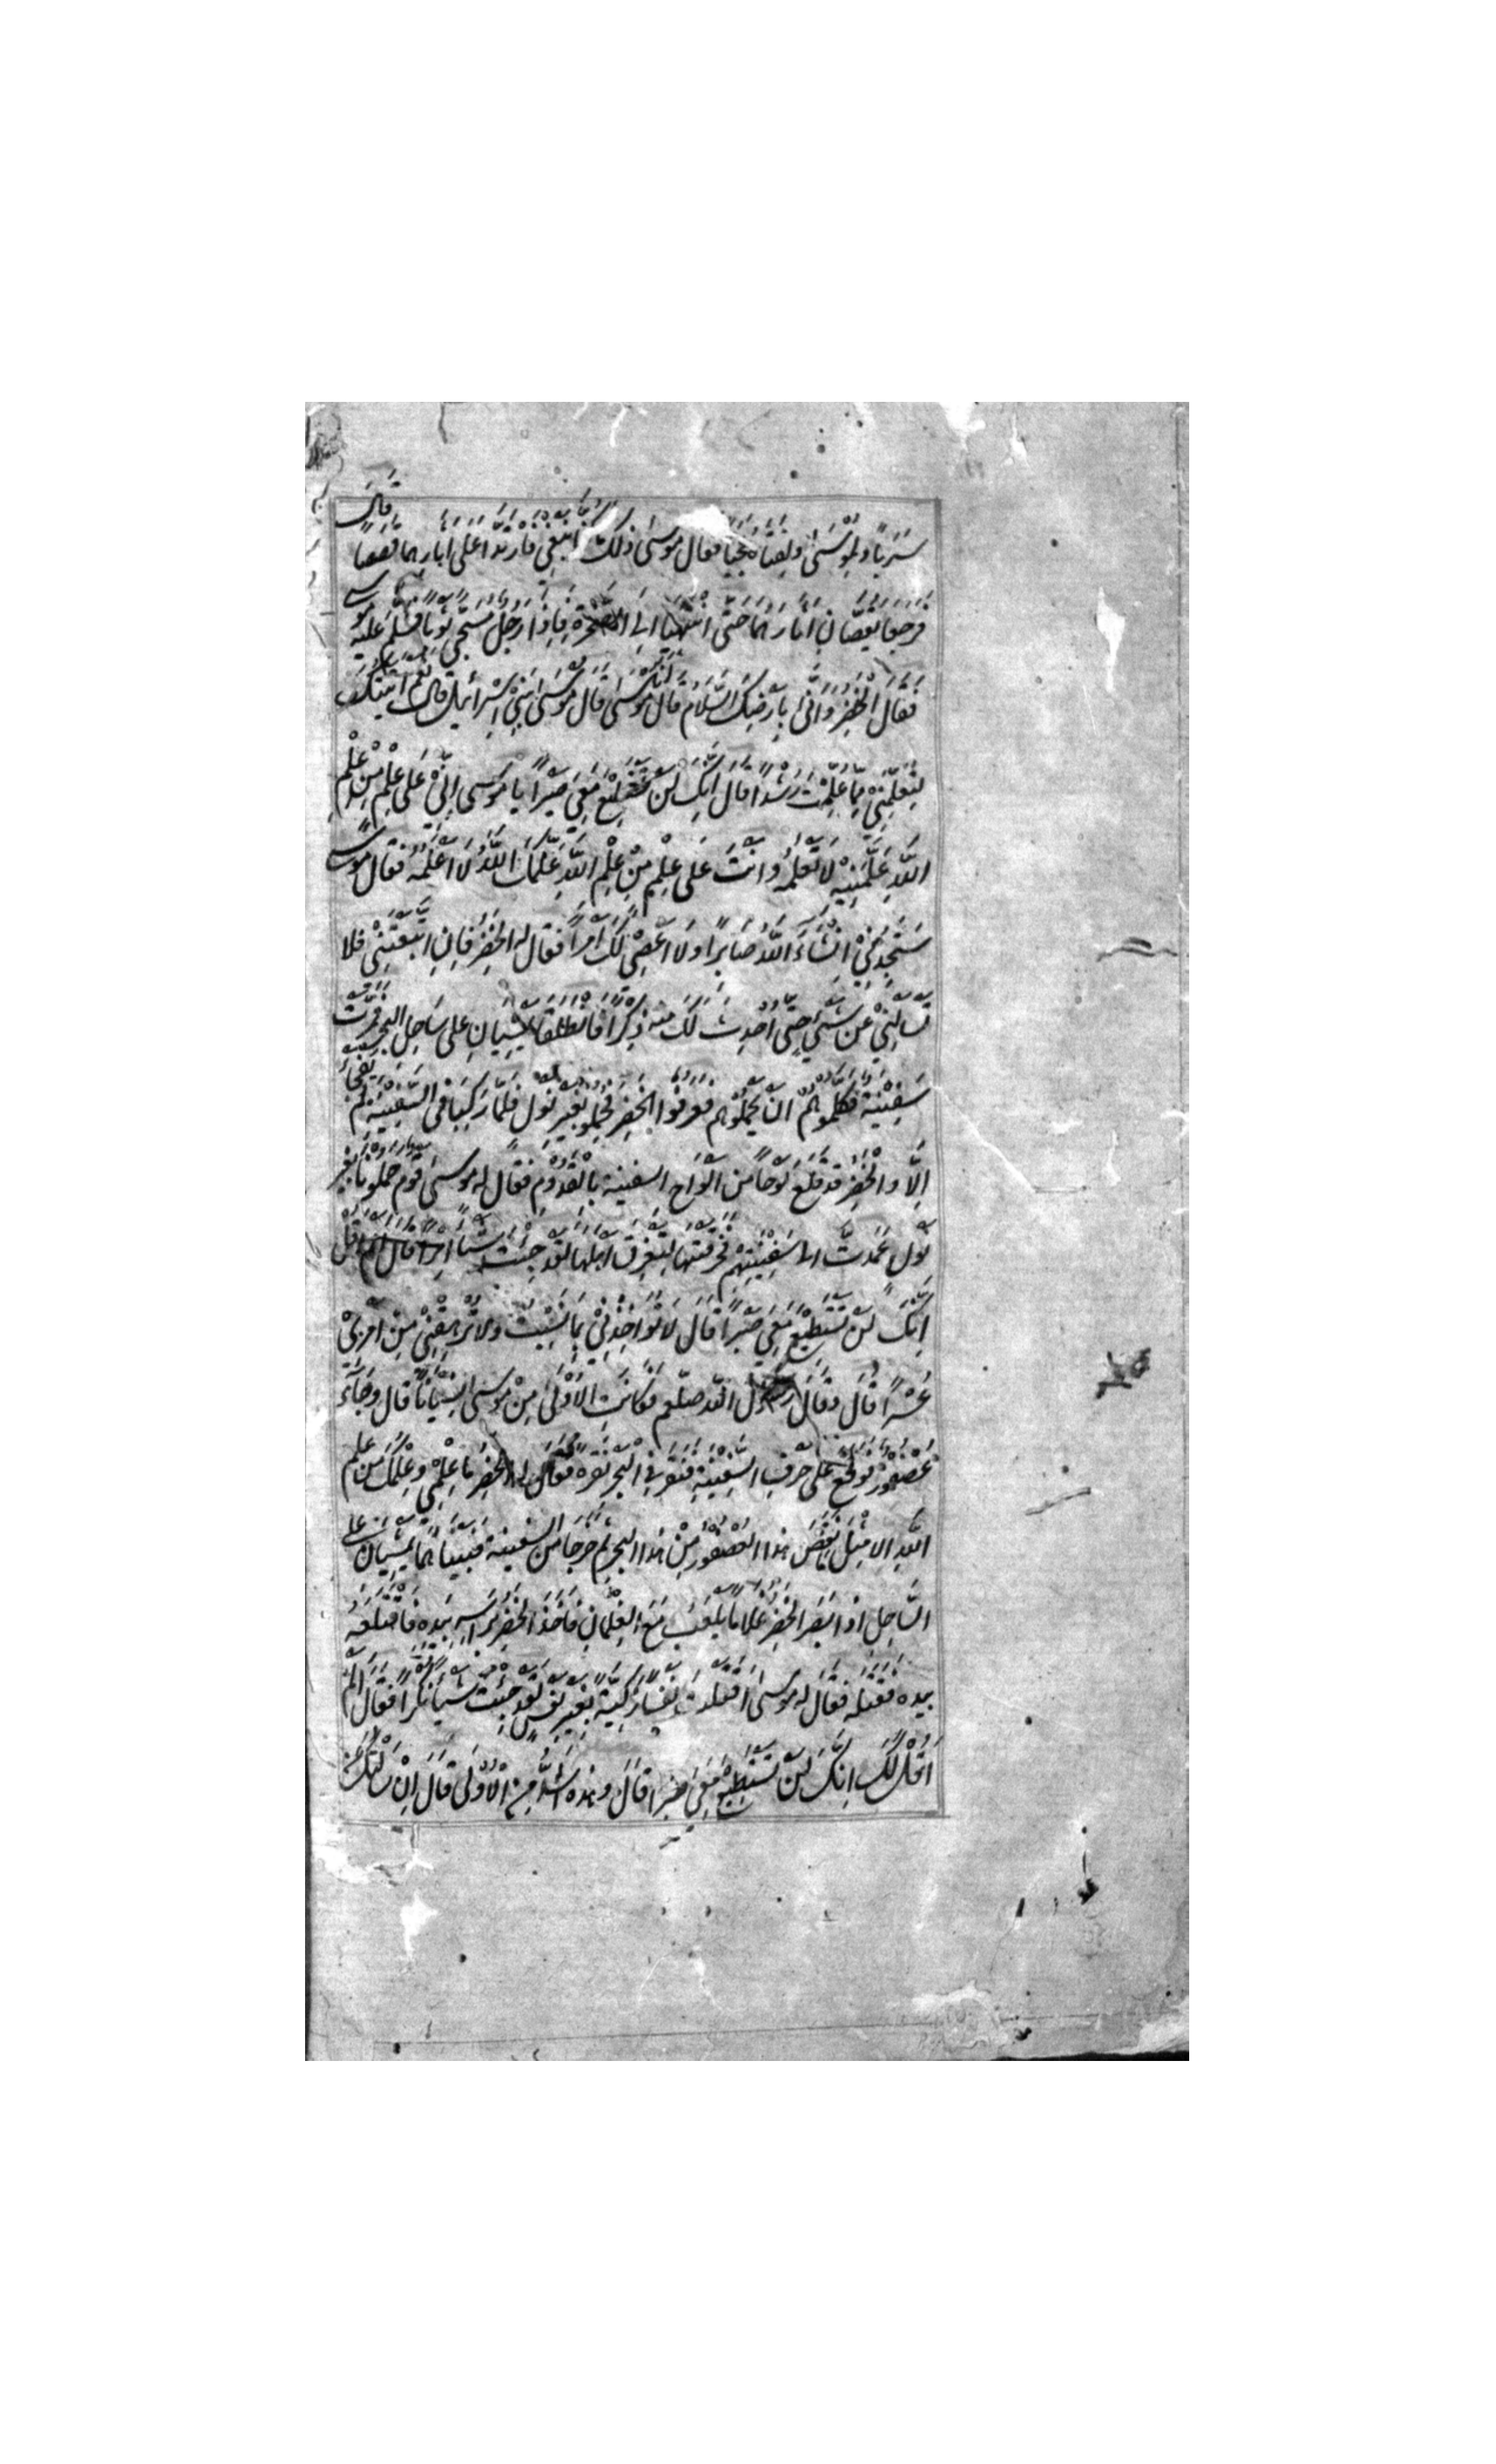 سَرَبًا ولِمُوْسٰى ولِفتاهُ عجبًا فقال موسى ذلك ما كنا نبغي فارتدا على آثارهما قصصًا قال
فرجعا يقصّانِ آثارهما حتّى انتهيا الى الصخرة فاذا رجل مسجّى ثوبًا فسلّم عليه موسى
فقال الخضِرُ وانّٰى بارضِكَ السّلام قال انا موسٰى قال موسٰى بني اسرائيل قال نعم اتيتك
لتعلّمني ممّا علّمت رشدًا قال انّك لن تستطيع معي صبرًا يا موسى انّي على علم من علم
اللّه علّمنيه لا تعلمه وانت على علم من علم اللّه علّمك اللّه لا اعلمه فقال موسى
ستجدني انشاءَ اللّه صابرًا ولا اعصي لك امرًا فقال له الخضر فان اتّبعتني فلا
تسألني عن شيء حتّى احدث لك منه ذكرًا فانطلقا يمشيان على ساحل البحر فمرّت
سفينة فكلموهم ان يحملوهم فعرفوا الخضر فحملوه بغير نول فلمّا ركبا في السّفينة لم يفجأ
الّا والخضر قد قلع لوحًا من الواح السفينة بالقدوم فقال له موسى قوم حملونا بغير
نول عمدت الى سفينتهم فخرقتها لتغرق اهلها لقد جئت شيئًا امرًا قال الم اقل
انّك لن تستطيع معي صبرًا قال لا تؤاخذني بما نسيت ولا ترهقني من امري
عسرًا قال وقال رسول اللّه صلعم فكانت الاولى من موسى نسيانًا قال وجاء
عصفور فوقع على حرف السّفينة فنقر في البحر نقره فقال له الخضر ما علمي وعلمك من علم
اللّه الا مثل ما نقص هذا العصفور من هذا البحر ثم خرجا من السفينة فبينا هما يمشيان على
السّاحل اذ ابصر الخضر غلامًا يلعب مع الغلمان فاخذ الخضر براسه بيده فاقتلعه
بيده فقتله فقال له موسى اقتلت نفسًا زكيّة بغير نفس لقد جئت شيئًا نكرًا فقال الم
اقل لك انّك لن تستطيع معي صبرا قال وهذه اشدّ من الاولى قال ان سالتك عن